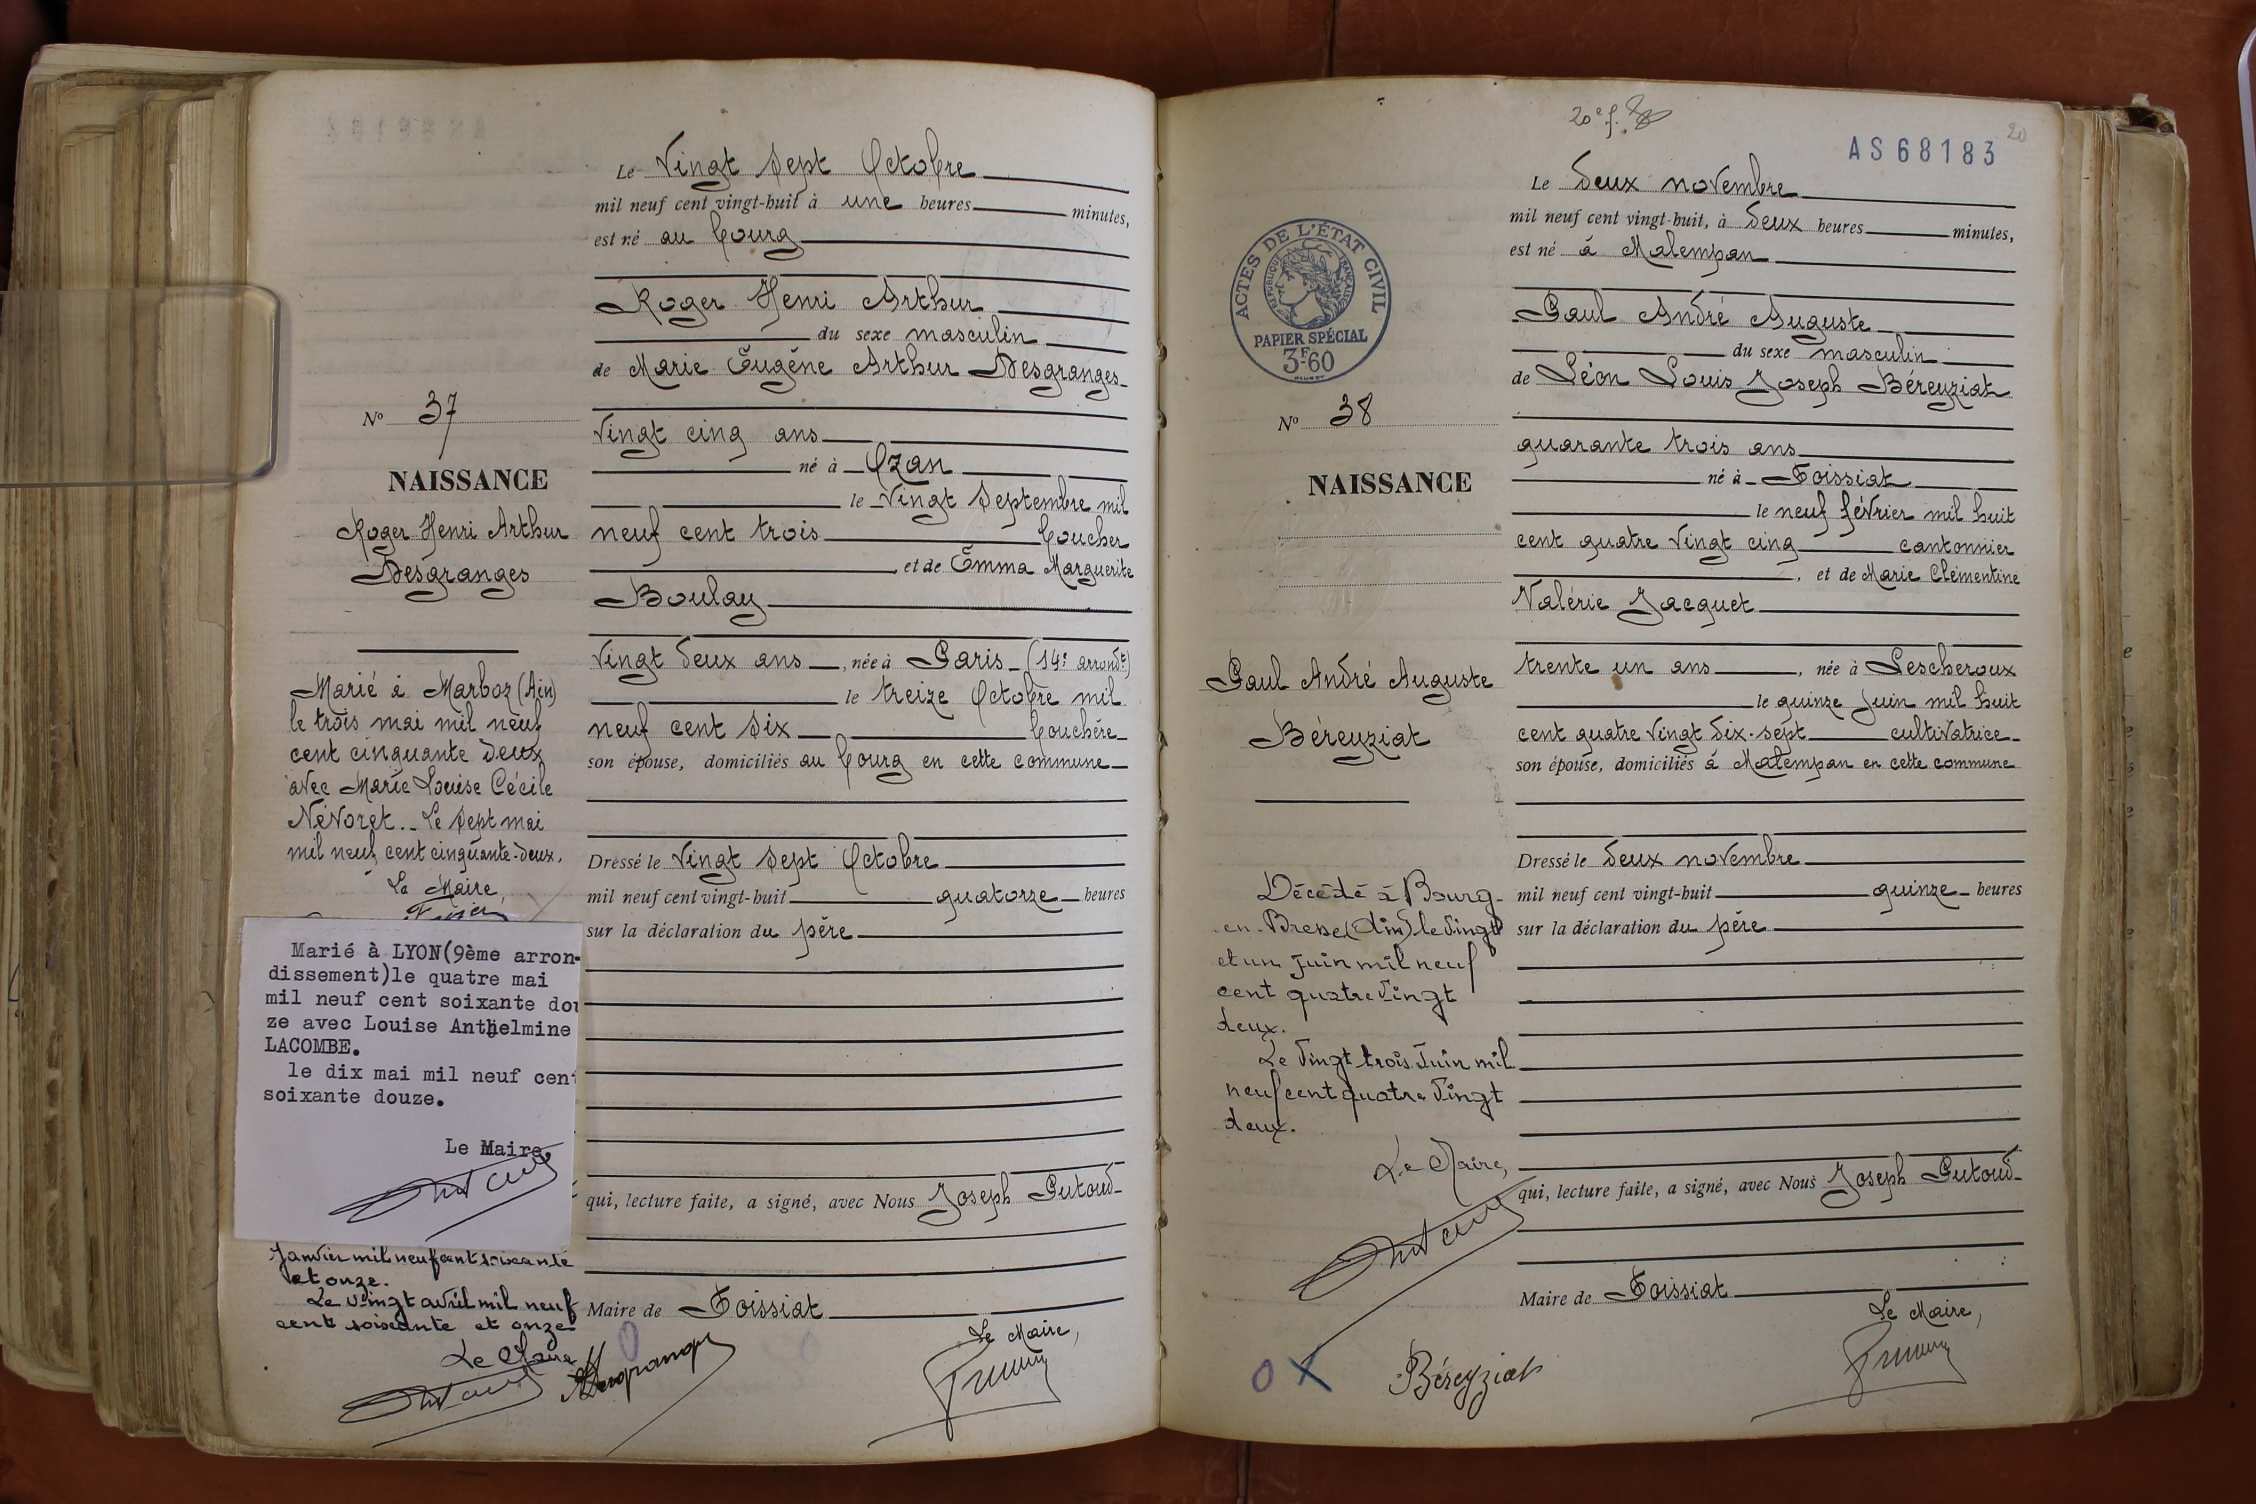 Le Vingt sept Octobre
mil neuf cent vingt-huit à une heures minutes,
est né au bourg
Roger Henri Arthur
du sexe masculin
de Marie Eugène Arthur Desgranges
Vingt cinq ans
né à Ozan
le Vingt Septembre mil
neuf cent trois boucher
et de Emma Marguerite
Boulay
Vingt deux ans, née à Paris (14e arrondt)
le treize Octobre mil
neuf cent six bouchère
son épouse, domiciliés au bourg en cette commune
Dressé le Vingt sept Octobre
mil neuf cent vingt-huit quatorze heures
sur la déclaration du père
qui, lecture faite, a signé, avec Nous Joseph Putoud
Maire de Foissiat
Le Maire,
No 37
NAISSANCE
Roger Henri Arthur
Desgranges
Marié à Marboz (Ain)
le trois mai mil neuf
cent cinquante deux
avec Marie Louise Cécile
Névoret. Le sept mai
mil neuf cent cinquante-deux.
Le Maire
Marié à LYON(9ème arron-
dissement)le quatre mai
mil neuf cent soixante dou
ze avec Louise Anthelmine
LACOMBE.
le dix mai mil neuf cent
soixante douze.
Le Maire,
Janvier mil neuf cent soixante
et onze.
Le vingt avril mil neuf
cent soixante et onze
Le Maire
20e f.
20
AS68183
ACTES DE L'ÉTAT CIVIL
RÉPUBLIQUE FRANÇAISE
PAPIER SPÉCIAL
3F60
Le deux novembre
mil neuf cent vingt-huit, à deux heures minutes,
est né à Malempan
Paul André Auguste
du sexe masculin
de Léon Louis Joseph Béreyziat
quarante trois ans
né à Foissiat
le neuf février mil huit
cent quatre vingt cinq cantonnier
, et de Marie Clémentine
Valérie Jacquet
trente un ans, née à Lescheroux
le quinze juin mil huit
cent quatre vingt dix-sept cultivatrice
son épouse, domiciliés à Malempan en cette commune
Dressé le deux novembre
mil neuf cent vingt-huit quinze heures
sur la déclaration du père
qui, lecture faite, a signé, avec Nous Joseph Putoud
Maire de Foissiat
Le Maire,
No 38
NAISSANCE
Paul André Auguste
Béreyziat
Décédé à Bourg-
en-Bresse (Ain) le vingt
et un Juin mil neuf
cent quatre vingt
deux.
Le vingt trois Juin mil
neuf cent quatre vingt
deux.
Le Maire,
Béreyziat